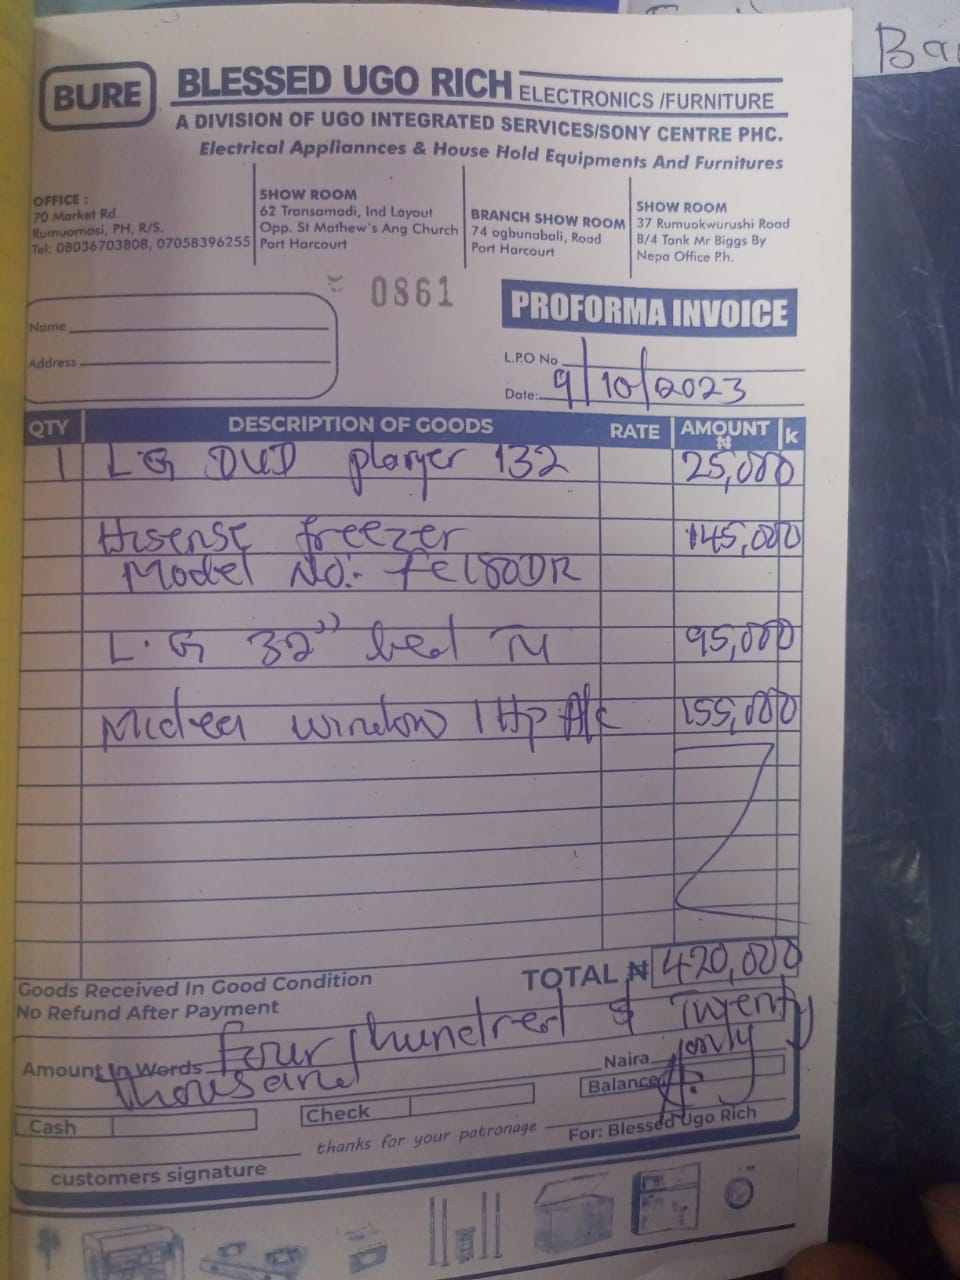 BURE
BLESSED UGO RICH ELECTRONICS /FURNITURE
A DIVISION OF UGO INTEGRATED SERVICES/SONY CENTRE PHC.
Electrical Appliannces & House Hold Equipments And Furnitures
OFFICE :
70 Market Rd.
Rumuomasi, PH, R/S.
Tel: 08036703808, 07058396255
SHOW ROOM
62 Transamadi, Ind Layout
Opp. St Mathew's Ang Church
Port Harcourt
BRANCH SHOW ROOM
74 ogbunabali, Road
Port Harcourt
SHOW ROOM
37 Rumuokwurushi Road
B/4 Tank Mr Biggs By
Nepa Office Ph.
0861
PROFORMA INVOICE
Name
Address
L.P.O No
Date: 9/10/2023
QTY DESCRIPTION OF GOODS RATE AMOUNT ₦ k
1 L.G DVD player 132 25,000
Hisense freezer 145,000
Model No:- FC180DR
L.G 32" led TV 95,000
Midea window 1Hp A/c 155,000
TOTAL ₦ 420,000
Goods Received In Good Condition
No Refund After Payment
Amount In Words four hundred & Twenty
thousand Naira only
Balance
Cash
Check
thanks for your patronage
For: Blessed Ugo Rich
customers signature